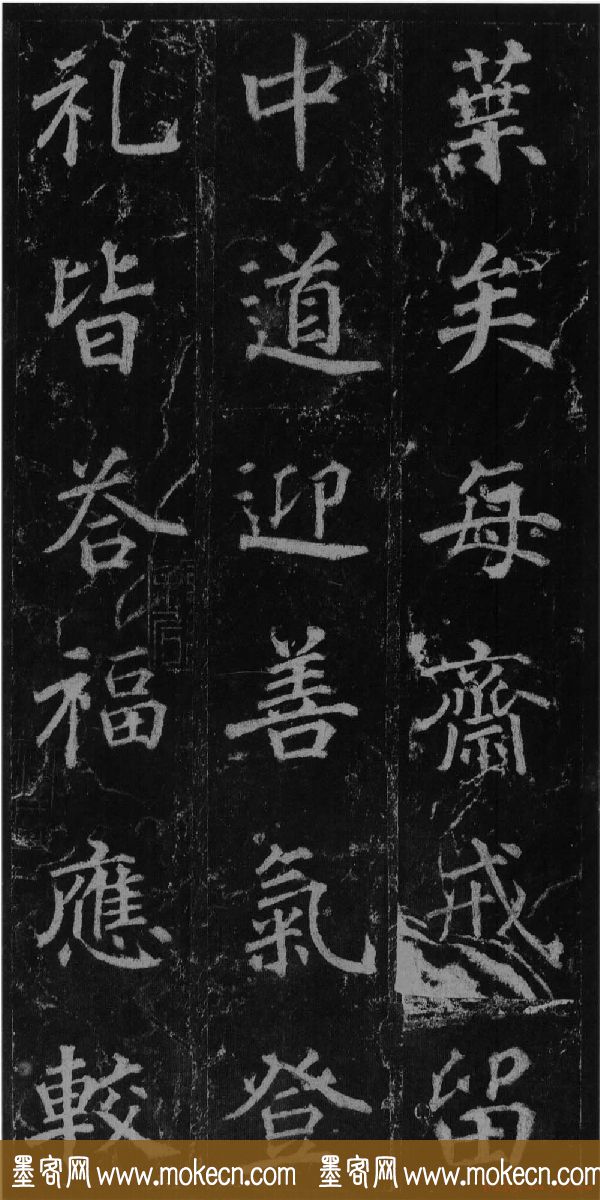 葉矣每齋戒留
中道迎善氣登
礼皆荅福應較
墨客网 www.mokecn.com 墨客网 www.mokecn.com